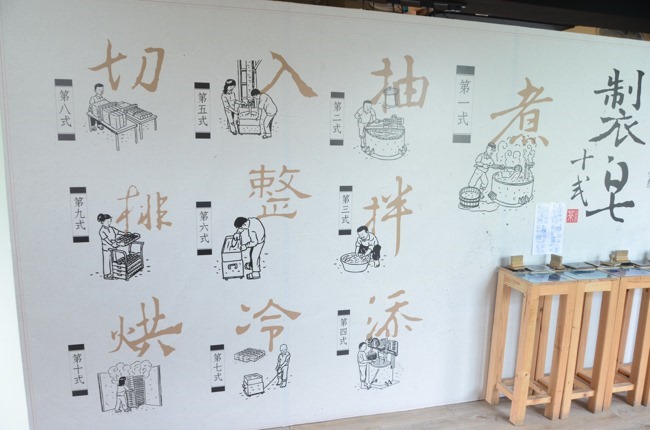 制衣皂
十弐
第一式
煮
第二式
抽
第三式
拌
第四式
添
第五式
入
第六式
整
第七式
冷
第八式
切
第九式
排
第十式
烘